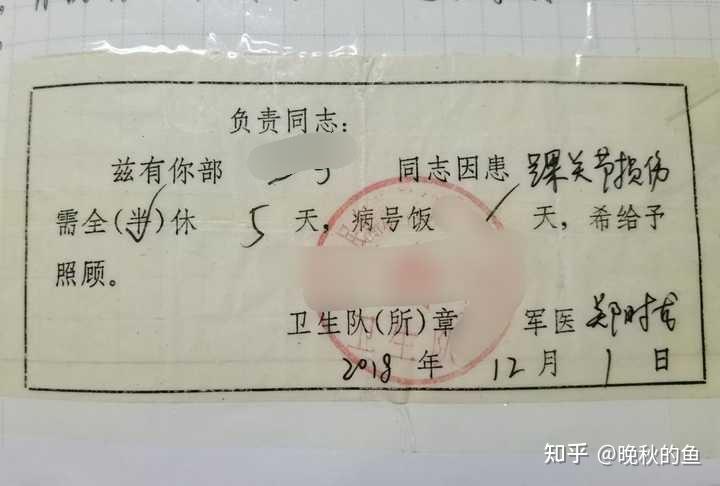 负责同志：
兹有你部 同志因患 踝关节损伤
需全(半)休 5 天，病号饭 / 天，希给予
照顾。
卫生队(所)章 军医 郑时
卫生队
2018 年 12 月 1 日
知乎 @晚秋的鱼